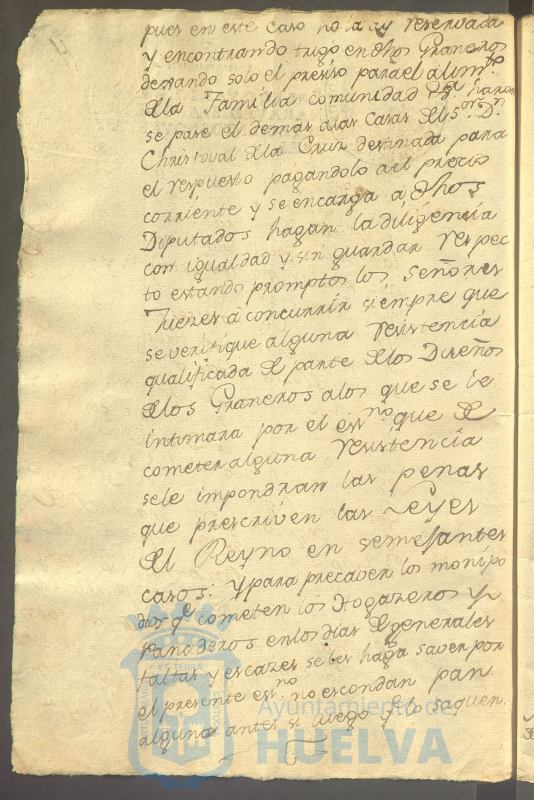 pues en este caso no la ay reservada
y encontrando trigo en dhos Graneros
dexando solo el preciso para el alimto
de la Familia comunidad
se pase el demas a las casas del Sor Dn
Christoval de la Cruz destinada para
el respuesto pagandolo a el precio
corriente y se encarga a dhos
Diputados hagan la diligencia
con igualdad y sin guardar respec
to estando promptos los señores
Juezes a concurrir siempre que
se verifique alguna resistencia
qualificada de parte de los Dueños
de los Graneros a los que se le
intimara por el essno que de
cometer alguna resistencia
se le impondran las penas
que prescriven las Leyes
del Reyno en semejantes
casos: y para precaver los monipo
dios qe cometen los Hogareros y
Panaderos en los dias de generales
faltas y escazes se les haga saver por
el presente essno no escondan pan
alguno antes si luego qe lo saquen
Ayuntamiento de
HUELVA